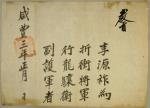 教旨
李源祚爲
折衝將軍
行龍驤衛
副護軍者
咸豐三年正月 日